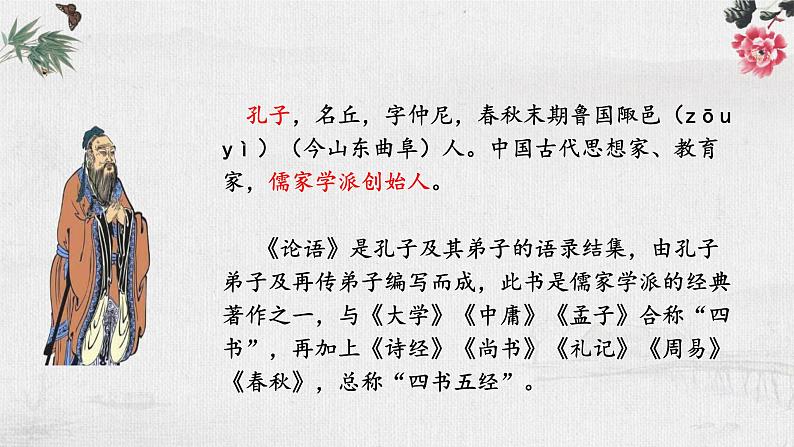 孔子，名丘，字仲尼，春秋末期鲁国陬邑（zōu
yì）（今山东曲阜）人。中国古代思想家、教育
家，儒家学派创始人。
《论语》是孔子及其弟子的语录结集，由孔子
弟子及再传弟子编写而成，此书是儒家学派的经典
著作之一，与《大学》《中庸》《孟子》合称“四
书”，再加上《诗经》《尚书》《礼记》《周易》
《春秋》，总称“四书五经”。